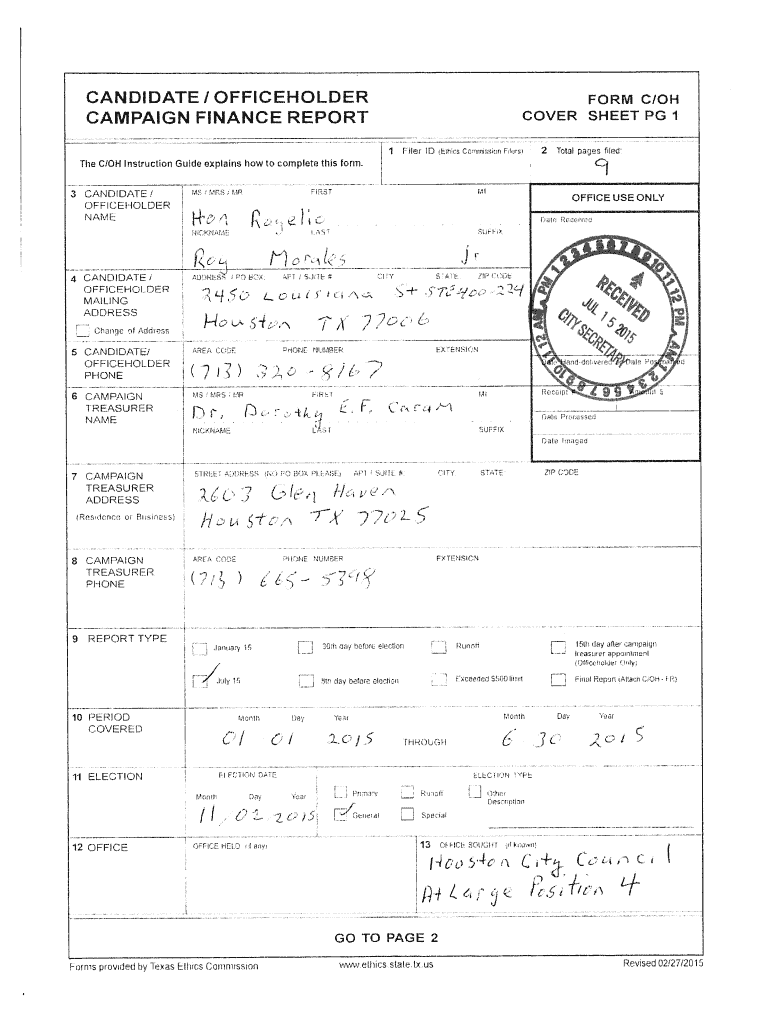 CANDIDATE / OFFICEHOLDER
CAMPAIGN FINANCE REPORT
FORM C/OH
COVER SHEET PG 1
The C/OH Instruction Guide explains how to complete this form.
1 Filer ID (Ethics Commission Filers)
2 Total pages filed:
9
3 CANDIDATE / OFFICEHOLDER NAME
MS / MRS / MR FIRST MI
Hon Rogelio
NICKNAME LAST SUFFIX
Roy Morales jr
OFFICE USE ONLY
Date Received
RECEIVED
JUL 15 2015
CITY SECRETARY
4 CANDIDATE / OFFICEHOLDER MAILING ADDRESS
Change of Address
ADDRESS / PO BOX; APT / SUITE # CITY STATE ZIP CODE
2450 Louisiana St STE 400-224
Houston TX 77006
5 CANDIDATE/ OFFICEHOLDER PHONE
AREA CODE PHONE NUMBER EXTENSION
(713) 320-8167
Date Hand-delivered or Date Postmarked
6 CAMPAIGN TREASURER NAME
MS / MRS / MR FIRST MI
Dr. Dorothy E.F. Caram
NICKNAME LAST SUFFIX
Receipt #
Date Processed
Date Imaged
7 CAMPAIGN TREASURER ADDRESS
(Residence or Business)
STREET ADDRESS (NO PO BOX PLEASE) APT / SUITE # CITY STATE ZIP CODE
2603 Glen Haven
Houston TX 77025
8 CAMPAIGN TREASURER PHONE
AREA CODE PHONE NUMBER EXTENSION
(713) 665-5398
9 REPORT TYPE
January 15
30th day before election
Runoff
15th day after campaign treasurer appointment (Officeholder Only)
July 15
8th day before election
Exceeded $500 limit
Final Report (Attach C/OH - FR)
10 PERIOD COVERED
Month Day Year
01 01 2015
THROUGH
Month Day Year
6 30 2015
11 ELECTION
ELECTION DATE
Month Day Year
11 02 2015
ELECTION TYPE
Primary
Runoff
Other Description
General
Special
12 OFFICE
OFFICE HELD (if any)
13 OFFICE SOUGHT (if known)
Houston City Council
At Large Position 4
GO TO PAGE 2
Forms provided by Texas Ethics Commission
www.ethics.state.tx.us
Revised 02/27/2015